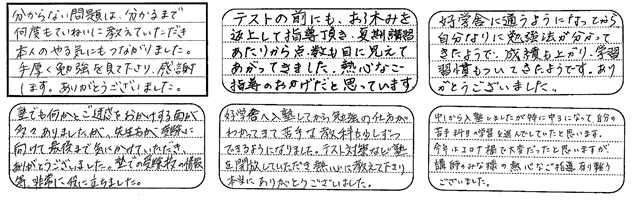 分からない問題は、分かるまで
何度もていねいに教えていただき
本人のやる気にもつながりました。
手厚く勉強を見て下さり、感謝
します。ありがとうございました。
テストの前にも、お休みを
返上して指導頂き、夏期講習
あたりから点数も目に見えて
あがってきました。熱心なご
指導のおかげだと思っています
好学舎に通うようになってから
自分なりに勉強法が分かって
きたようで、成績も上がり、学習
習慣もついてきたようです。あり
がとうございました。
塾でも何かとご迷惑をおかけする面が
多々ありましたが、先生方が受験に
向けて最後まで気にかけていただき、
ありがとうございました。塾での受験校の情報
等、非常に役に立ちました。
好学舎へ入塾してから勉強の仕方が
わかってきて苦手な教科も少しずつ
できるようになりました。テスト対策など塾
を開放していただき熱心に教えて下さり
本当にありがとうございました。
中1から入塾しましたが特に中3になって、自分の
苦手科目の学習を進んでしていたと思います。
今年はコロナ禍で大変だったと思いますが、
講師のみな様の熱心なご指導有り難う
ございました。